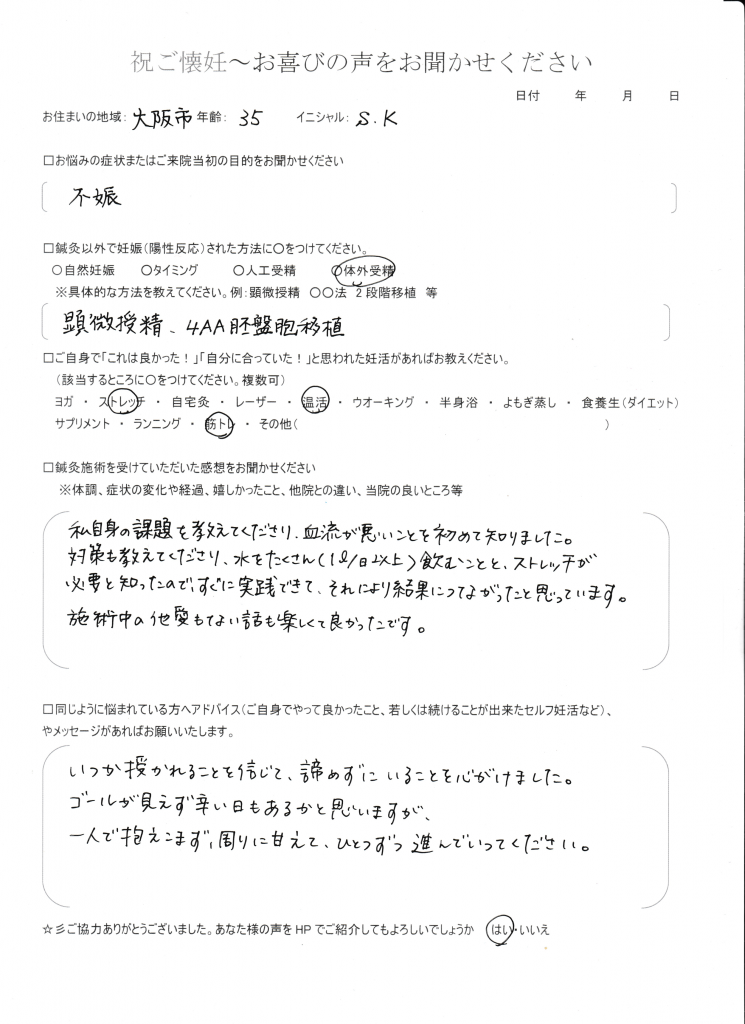 祝ご懐妊～お喜びの声をお聞かせください
日付　　年　　月　　日
お住まいの地域：大阪市 年齢：35　イニシャル：S.K
□お悩みの症状またはご来院当初の目的をお聞かせください
不娠
□鍼灸以外で妊娠（陽性反応）された方法に〇をつけてください。
〇自然妊娠　〇タイミング　〇人工受精　〇体外受精
※具体的な方法を教えてください。例：顕微授精　〇〇法　2段階移植　等
顕微授精、4AA胚盤胞移植
□ご自身で「これは良かった！」「自分に合っていた！」と思われた妊活があればお教えください。
（該当するところに〇をつけてください。複数可）
ヨガ ・ ストレッチ ・ 自宅灸 ・ レーザー ・ 温活 ・ ウオーキング ・ 半身浴 ・ よもぎ蒸し ・ 食養生（ダイエット）
サプリメント ・ ランニング ・ 筋トレ ・ その他（　　　）
□鍼灸施術を受けていただいた感想をお聞かせください
※体調、症状の変化や経過、嬉しかったこと、他院との違い、当院の良いところ等
私自身の課題を教えてくださり、血流が悪いことを初めて知りました。
対策も教えてくださり、水をたくさん（1ℓ/日以上）飲むことと、ストレッチが
必要と知ったので、すぐに実践できて、それにより結果につながったと思っています。
施術中の他愛もない話も楽しくて良かったです。
□同じように悩まれている方へアドバイス（ご自身でやって良かったこと、若しくは続けることが出来たセルフ妊活など）、
やメッセージがあればお願いいたします。
いつか授かれることを信じて、諦めずにいることを心がけました。
ゴールが見えず辛い日もあるかと思いますが、
一人で抱えこまず、周りに甘えて、ひとつずつ進んでいってください。
☆彡ご協力ありがとうございました。あなた様の声をHPでご紹介してもよろしいでしょうか　はい・いいえ